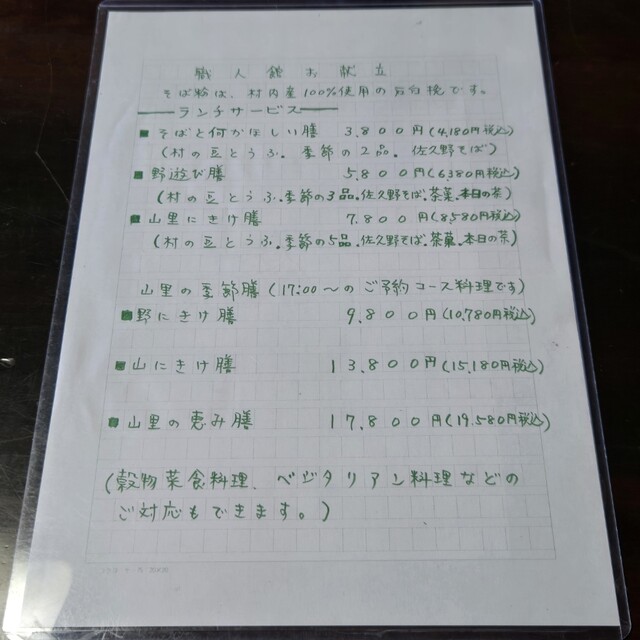 職人館お献立
そば粉は、村内産100%使用の石臼挽です。
ランチサービス
■そばと何かほしい膳 3,800円(4,180円税込)
(村の豆とうふ、季節の2品、佐久野そば)
■野遊び膳 5,800円(6,380円税込)
(村の豆とうふ、季節の3品、佐久野そば、茶菓、本日の茶)
■山里にきけ膳 7,800円(8,580円税込)
(村の豆とうふ、季節の5品、佐久野そば、茶菓、本日の茶)
山里の季節膳(17:00〜のご予約コース料理です)
■野にきけ膳 9,800円(10,780円税込)
■山にきけ膳 13,800円(15,180円税込)
■山里の恵み膳 17,800円(19,580円税込)
(穀物菜食料理、ベジタリアン料理などの
ご対応もできます。)